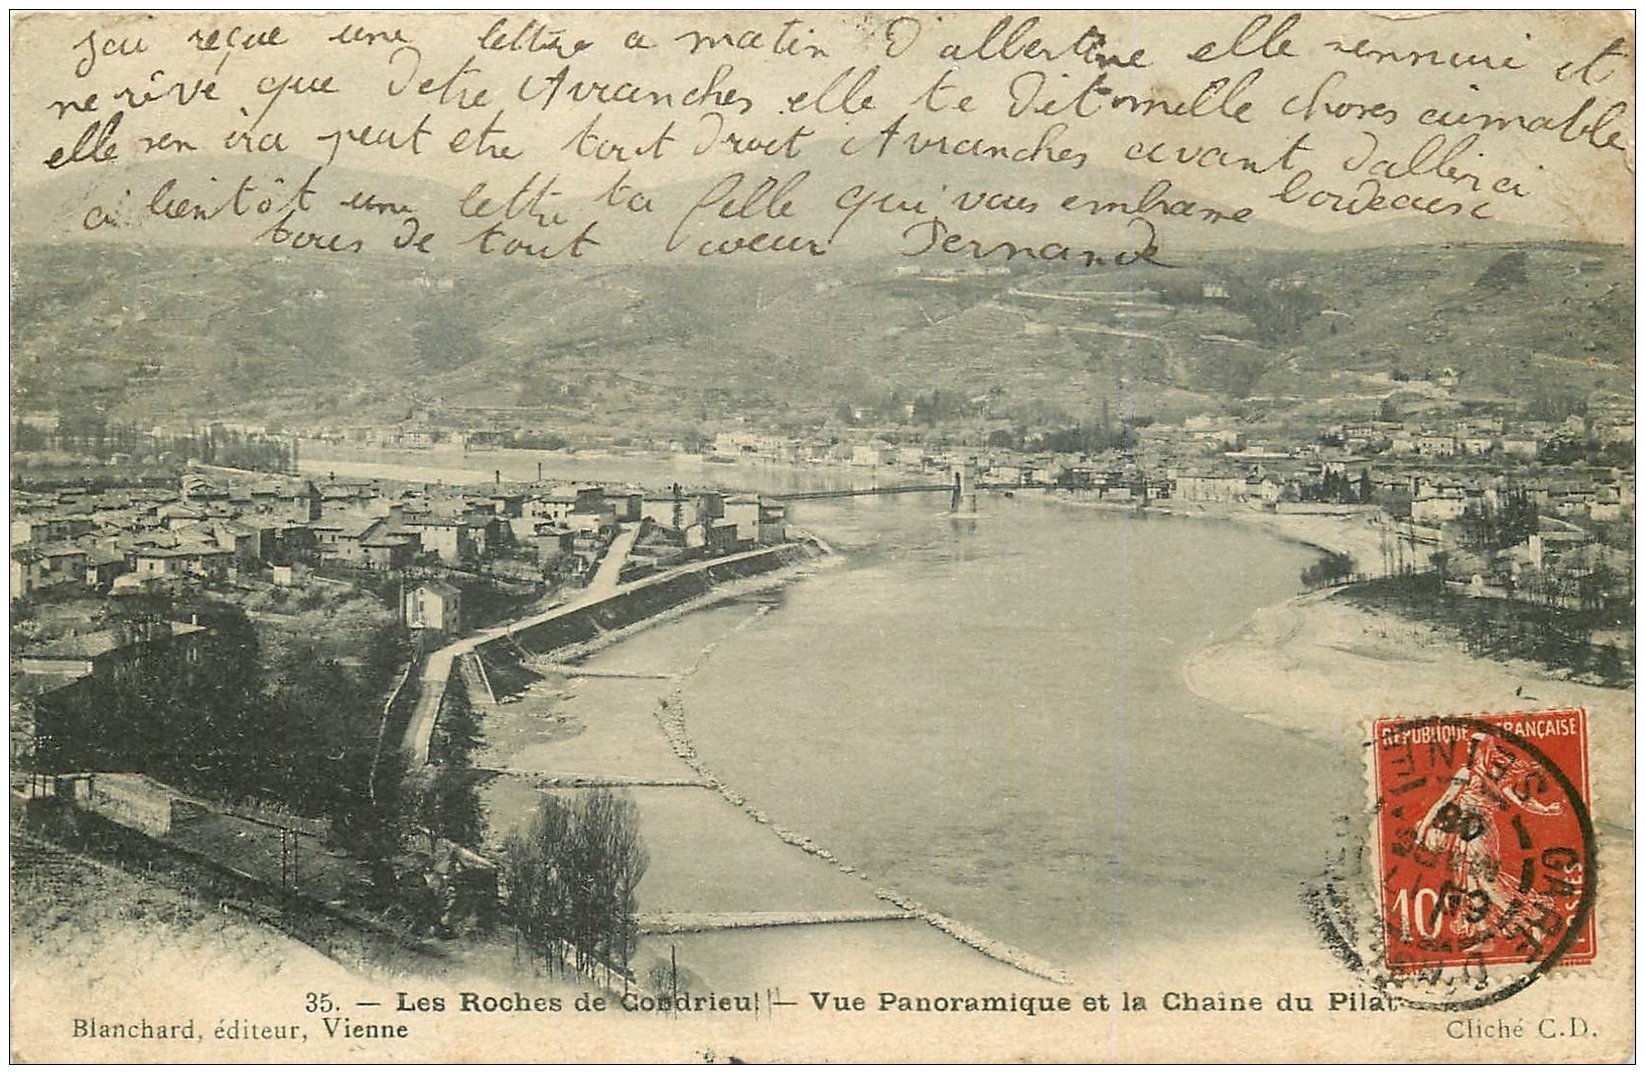 jai reçue une lettre a matin d'albertine elle sennuie et
ne rêve que detre Avranches elle te dit mille choses aimable
elle sen ira peut etre tout droit Avranches avant daller ici
a bientôt une lettre ta fille qui vous embrasse bordeause
tous de tout coeur Fernande
REPUBLIQUE FRANÇAISE
10c POSTES
GARE
35. — Les Roches de Condrieu — Vue Panoramique et la Chaîne du Pilat
Blanchard, éditeur, Vienne
Cliché C.D.